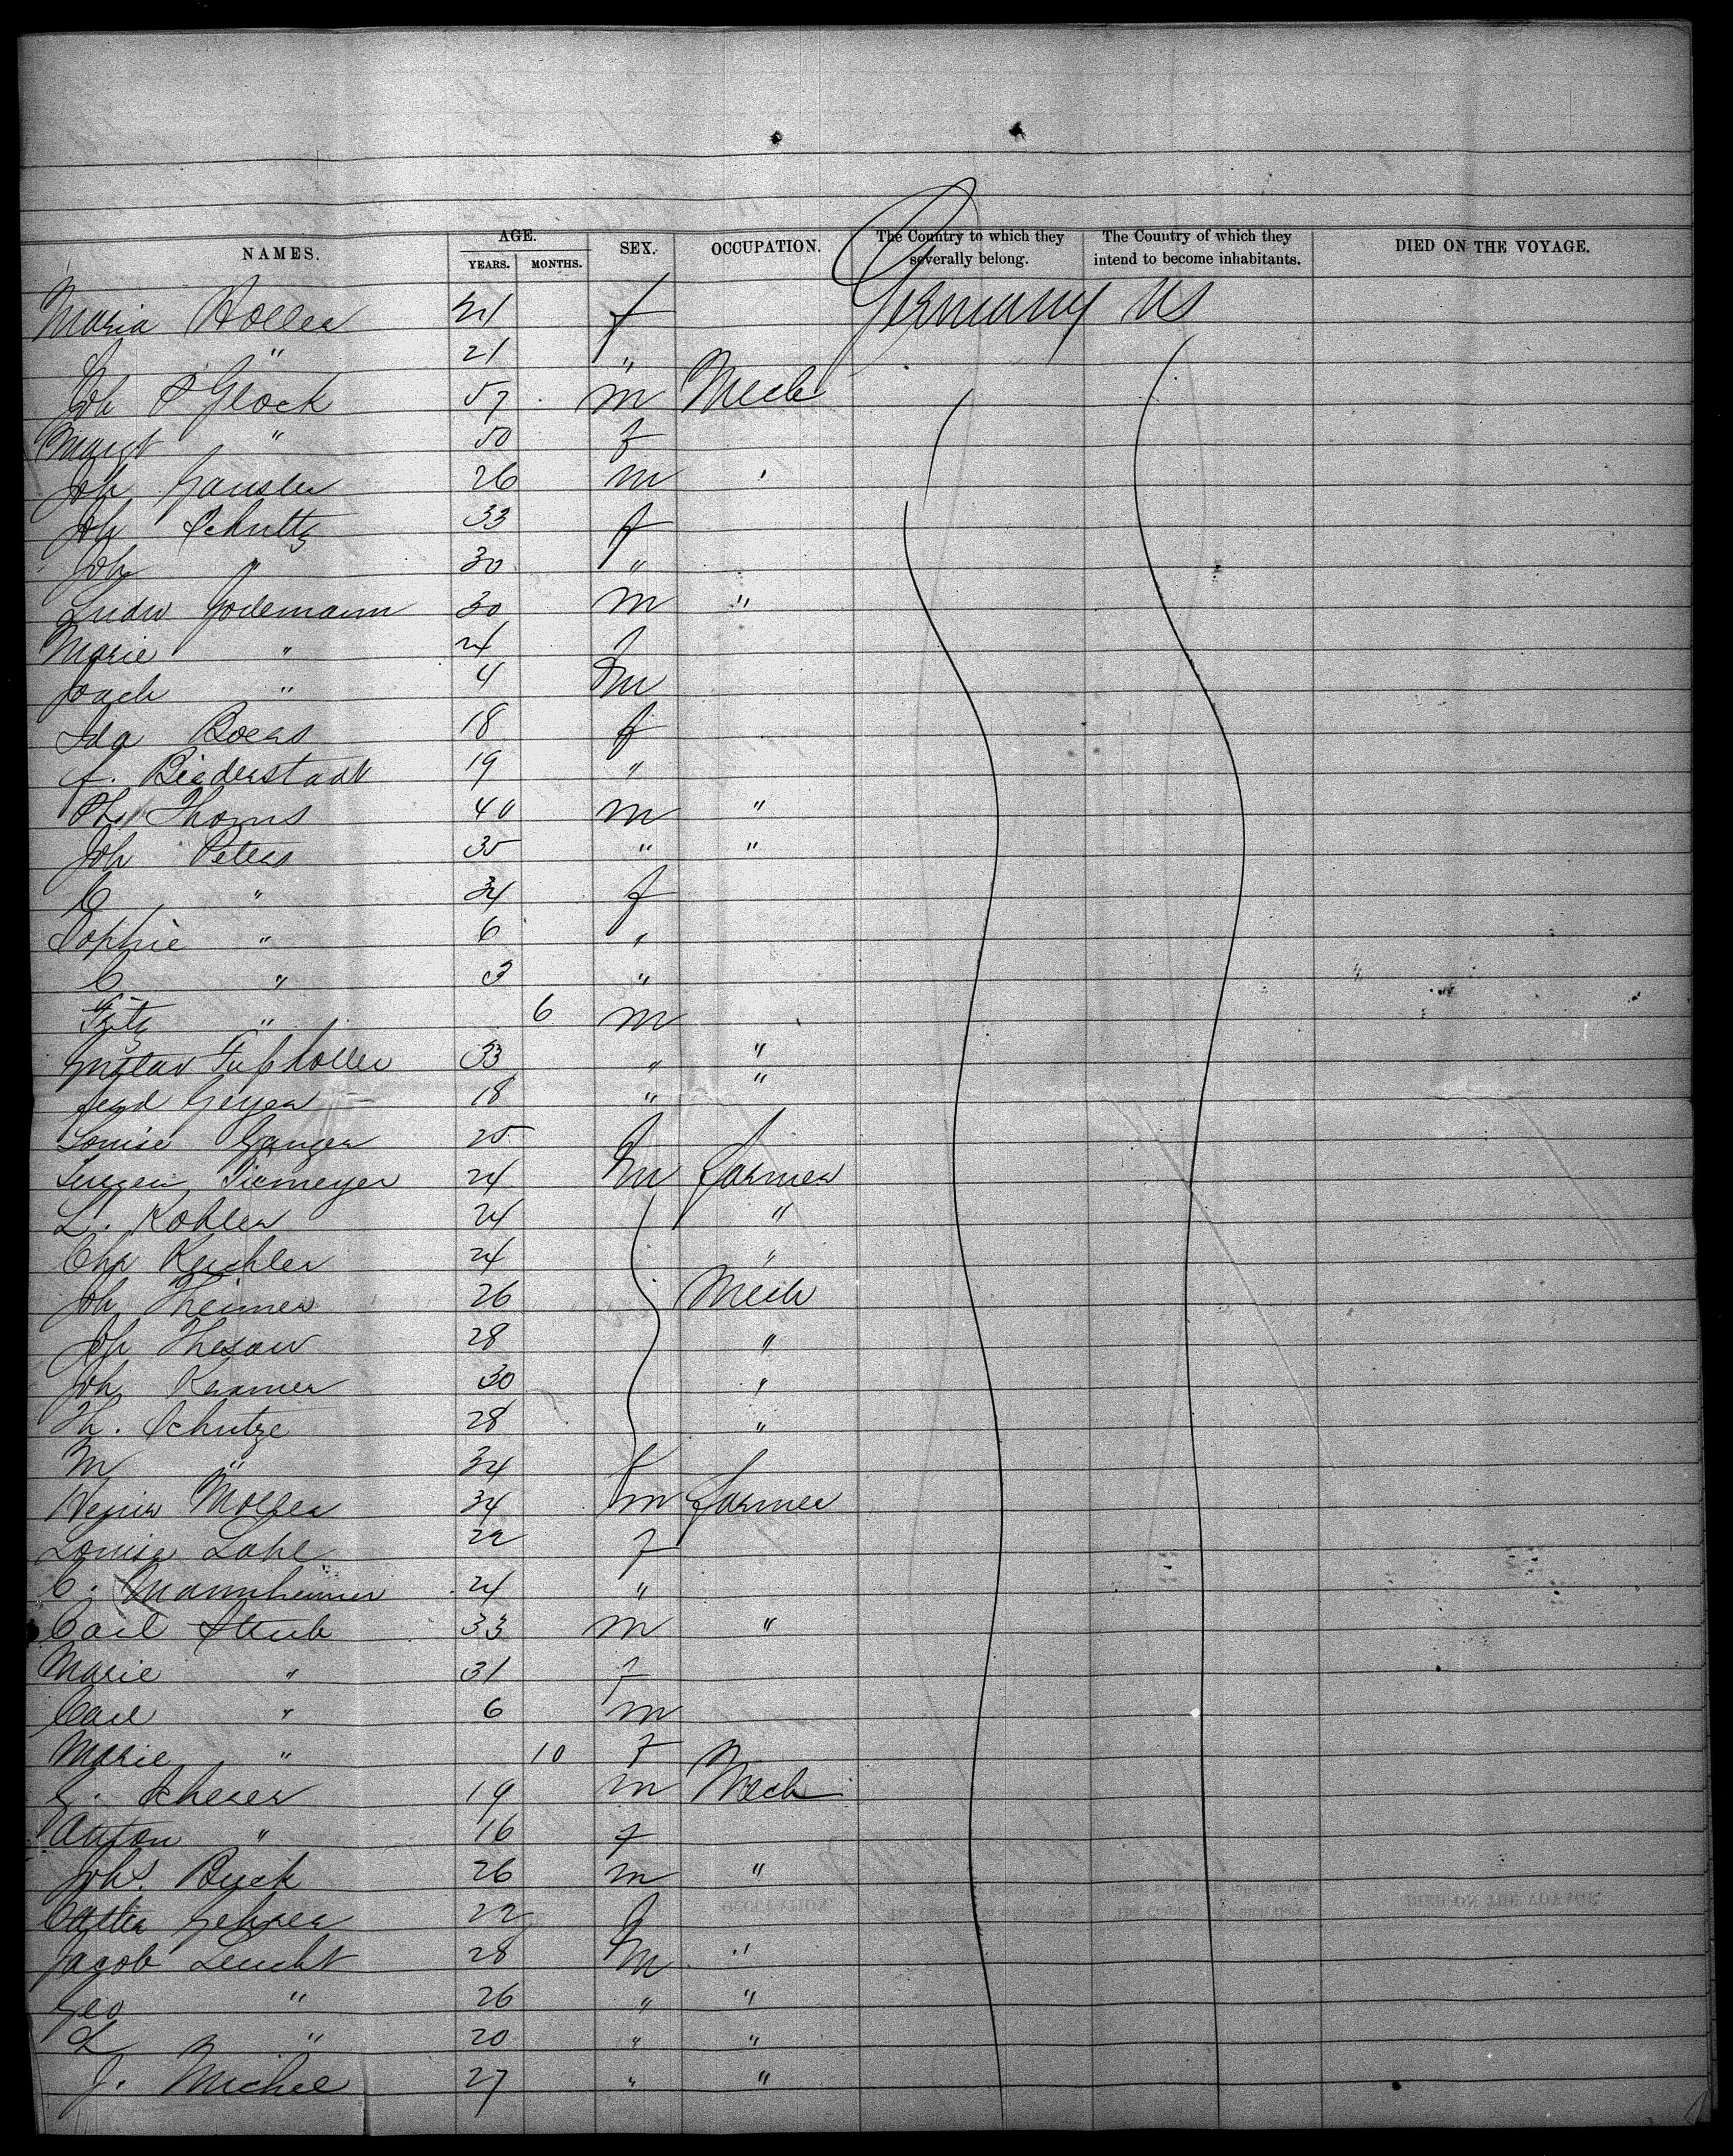 NAMES. AGE. YEARS. MONTHS. SEX. OCCUPATION. The Country to which they severally belong. The Country of which they intend to become inhabitants. DIED ON THE VOYAGE.
Maria 21 f Germany US
" 21 "
Joh Glock 57 m Mech
Margt " 50 f
Joh 26 m "
Joh Schultz 33 f
Joh " 30 "
Ludw 30 m "
Marie " 24 f
Joach " 4 m
Ida Boers 18 f
f. Biederstadt 19 "
Thoms 40 m "
Joh Peters 35 " "
C " 34 f
Sophie " 6 "
C " 3 "
Fritz " 6 m
Gustav 33 " "
Ferd Geyer 18 " "
Louise 25 f
Tiemeyer 24 m farmer
L. Kohler 24 "
Chr 24 "
Joh 26 Mech
Joh 28 "
Joh Kramer 30 "
Th. Schutze 28 "
M " 34 f
Moller 34 m farmer
Louise 22 f
C. Mannheimer 24 "
Carl 33 m "
Marie " 31 f
Carl " 6 m
Marie " 10 f
Scherer 19 m Mech
Anton " 16 f
Johs. Buck 26 m "
22 f
Jacob Leucht 28 m "
Geo " 26 " "
L " 20 " "
J. Michel 27 " "